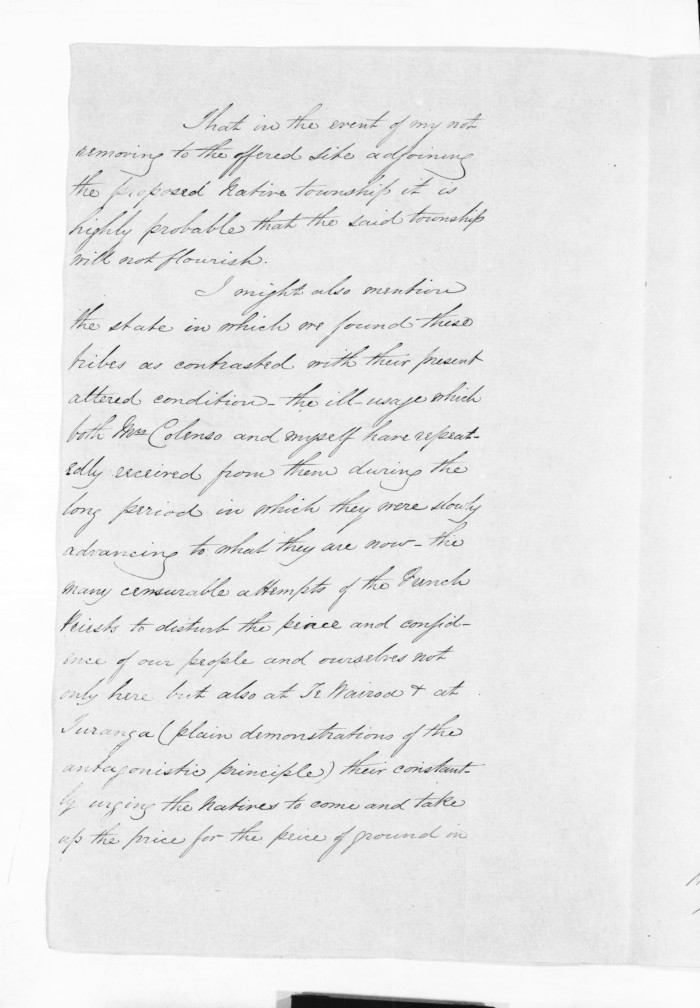 That in the event of my not
removing to the offered site adjoining
the proposed Native township it is
highly probable that the said township
will not flourish.
I might also mention
the state in which we found these
tribes as contrasted with their present
altered condition - the ill-usage which
both Mrs Colenso and myself have repeat-
edly received from them during the
long period in which they were slowly
advancing to what they are now - the
many censurable attempts of the French
Priests to disturb the peace and confid-
ence of our people and ourselves not
only here but also at Te Wairoa & at
Turanga (plain demonstrations of the
antagonistic principle) their constant-
ly urging the Natives to come and take
up the price for the peice of ground in